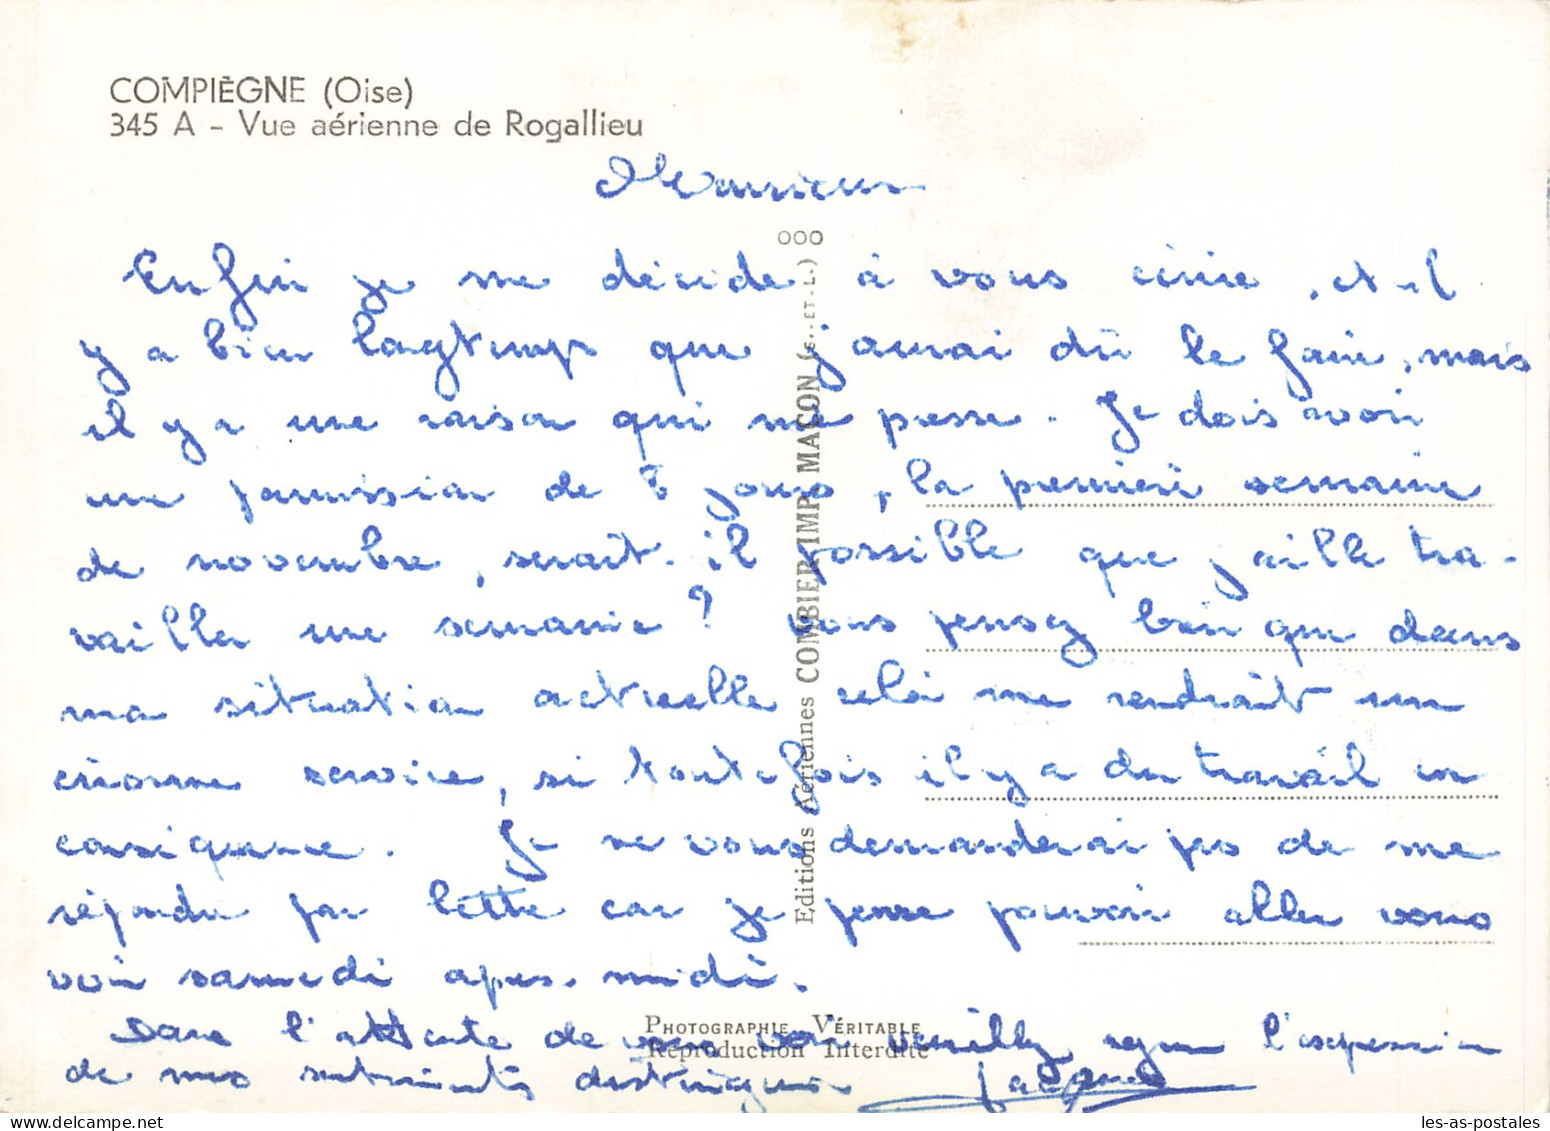 COMPIÈGNE (Oise)
345 A - Vue aérienne de Rogallieu
Monsieur
Enfin je me décide à vous écrire, et il
y a bien longtemps que j'aurai dû le faire, mais
il y a une raison qui me presse. Je dois avoir
une permission de 8 jours, la première semaine
de novembre, serait-il possible que j'aille tra-
vailler une semaine ? vous pensez bien que dans
ma situation actuelle celà me rendrait un
énorme service, si toutefois il y a du travail en
conséquence. Je ne vous demanderai pas de me
répondre par lettre car je pense pouvoir aller vous
voir samedi après-midi.
Dans l'attente de vous voir veuillez agréer l'expression
de mes sentiments distingués Jacques
Editions Aériennes COMBIER IMP. MACON (S.-ET-L.) OOO
PHOTOGRAPHIE VÉRITABLE
Reproduction Interdite
les-as-postales